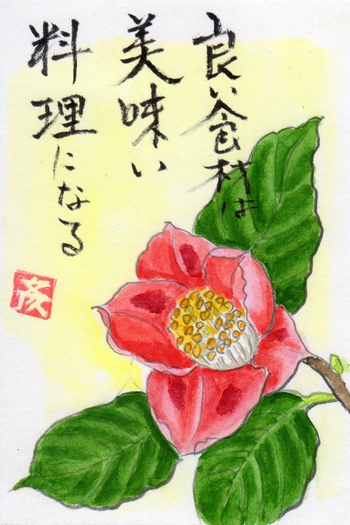 良い食材は
美味い
料理になる